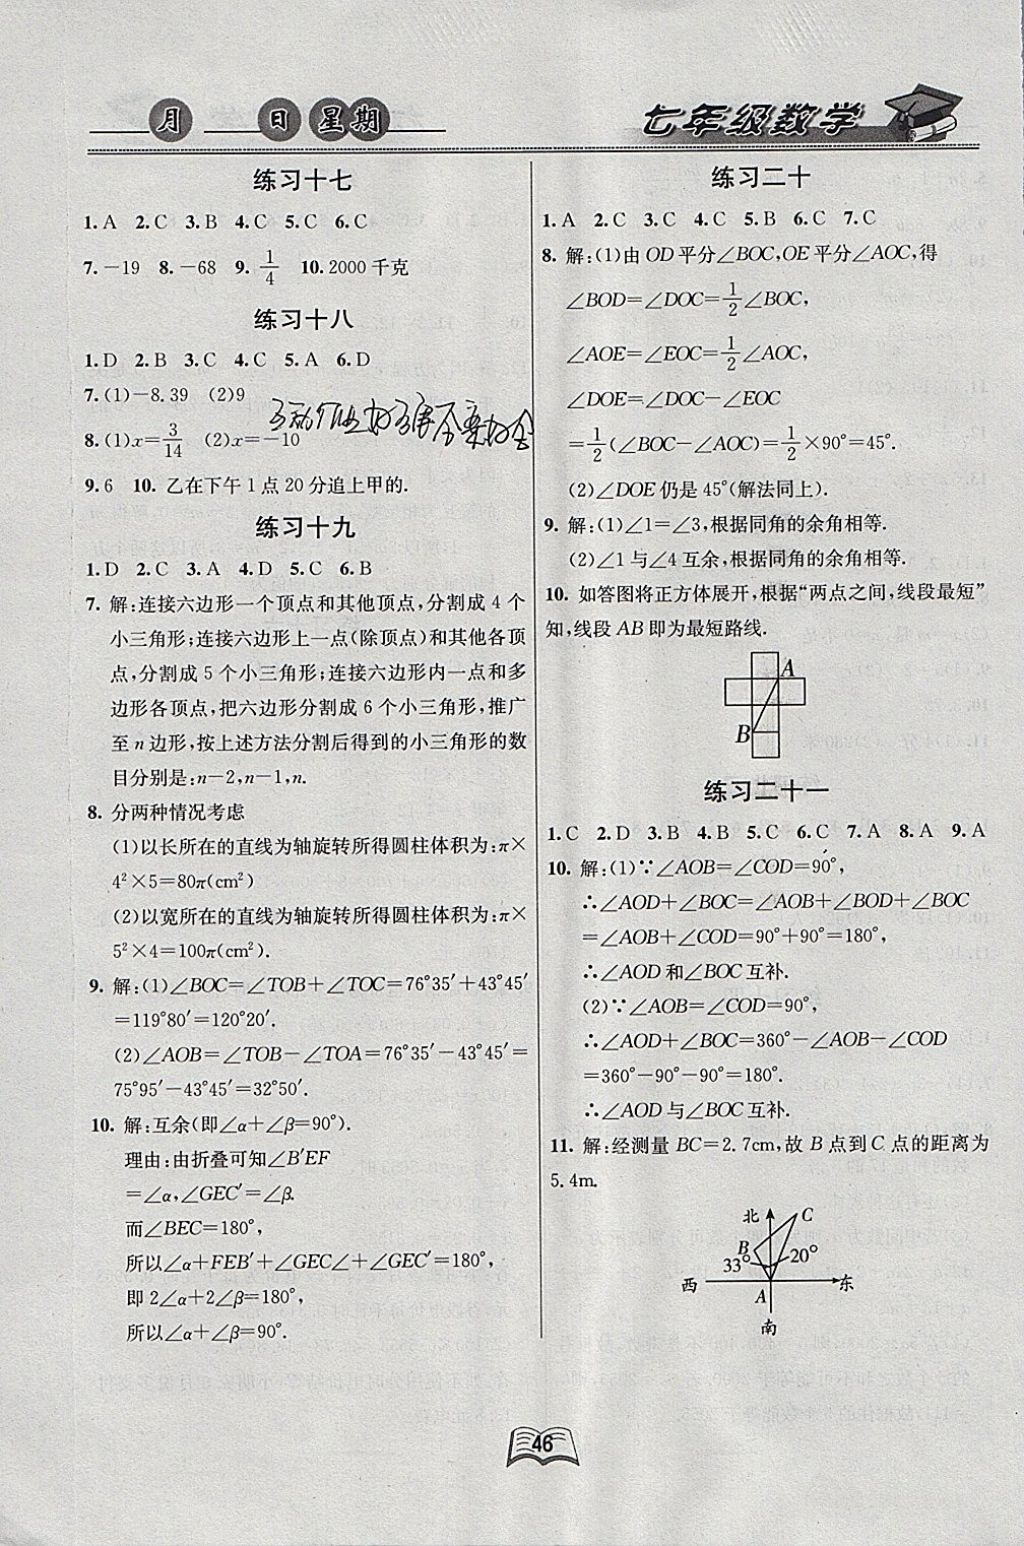 月 日 星 期
七年级数学
练习十七
1. A 2. C 3. B 4. C 5. C 6. C
7. -19 8. -68 9. 1/4 10. 2000 千克
练习十八
1. D 2. B 3. C 4. C 5. A 6. D
7. (1)-8.39 (2)9
8. (1)x=3/14 (2)x=-10
9. 6 10. 乙在下午 1 点 20 分追上甲的.
练习十九
1. D 2. C 3. A 4. D 5. C 6. B
7. 解:连接六边形一个顶点和其他顶点,分割成 4 个
小三角形;连接六边形上一点(除顶点)和其他各顶
点,分割成 5 个小三角形;连接六边形内一点和多
边形各顶点,把六边形分割成 6 个小三角形,推广
至 n 边形,按上述方法分割后得到的小三角形的数
目分别是:n-2,n-1,n.
8. 分两种情况考虑
(1)以长所在的直线为轴旋转所得圆柱体积为:π×
4²×5=80π(cm²)
(2)以宽所在的直线为轴旋转所得圆柱体积为:π×
5²×4=100π(cm²).
9. 解:(1)∠BOC=∠TOB+∠TOC=76°35′+43°45′
=119°80′=120°20′.
(2)∠AOB=∠TOB-∠TOA=76°35′-43°45′=
75°95′-43°45′=32°50′.
10. 解:互余(即∠α+∠β=90°).
理由:由折叠可知∠B′EF
=∠α,∠GEC′=∠β.
而∠BEC=180°,
所以∠α+FEB′+∠GEC∠+∠GEC′=180°,
即 2∠α+2∠β=180°,
所以∠α+∠β=90°.
练习二十
1. A 2. C 3. C 4. C 5. B 6. C 7. C
8. 解:(1)由 OD 平分∠BOC,OE 平分∠AOC,得
∠BOD=∠DOC=1/2∠BOC,
∠AOE=∠EOC=1/2∠AOC,
∠DOE=∠DOC-∠EOC
=1/2(∠BOC-∠AOC)=1/2×90°=45°.
(2)∠DOE 仍是 45°(解法同上).
9. 解:(1)∠1=∠3,根据同角的余角相等.
(2)∠1 与∠4 互余,根据同角的余角相等.
10. 如答图将正方体展开,根据“两点之间,线段最短”
知,线段 AB 即为最短路线.
A
B
练习二十一
1. C 2. D 3. B 4. B 5. C 6. C 7. A 8. A 9. A
10. 解:(1)∵∠AOB=∠COD=90°,
∴∠AOD+∠BOC=∠AOB+∠BOD+∠BOC
=∠AOB+∠COD=90°+90°=180°,
∴∠AOD 和∠BOC 互补.
(2)∵∠AOB=∠COD=90°,
∴∠AOD+∠BOC=360°-∠AOB-∠COD
=360°-90°-90°=180°.
∴∠AOD 与∠BOC 互补.
11. 解:经测量 BC=2.7cm,故 B 点到 C 点的距离为
5.4m.
北 C
B
33° 20°
西 东
A
南
46